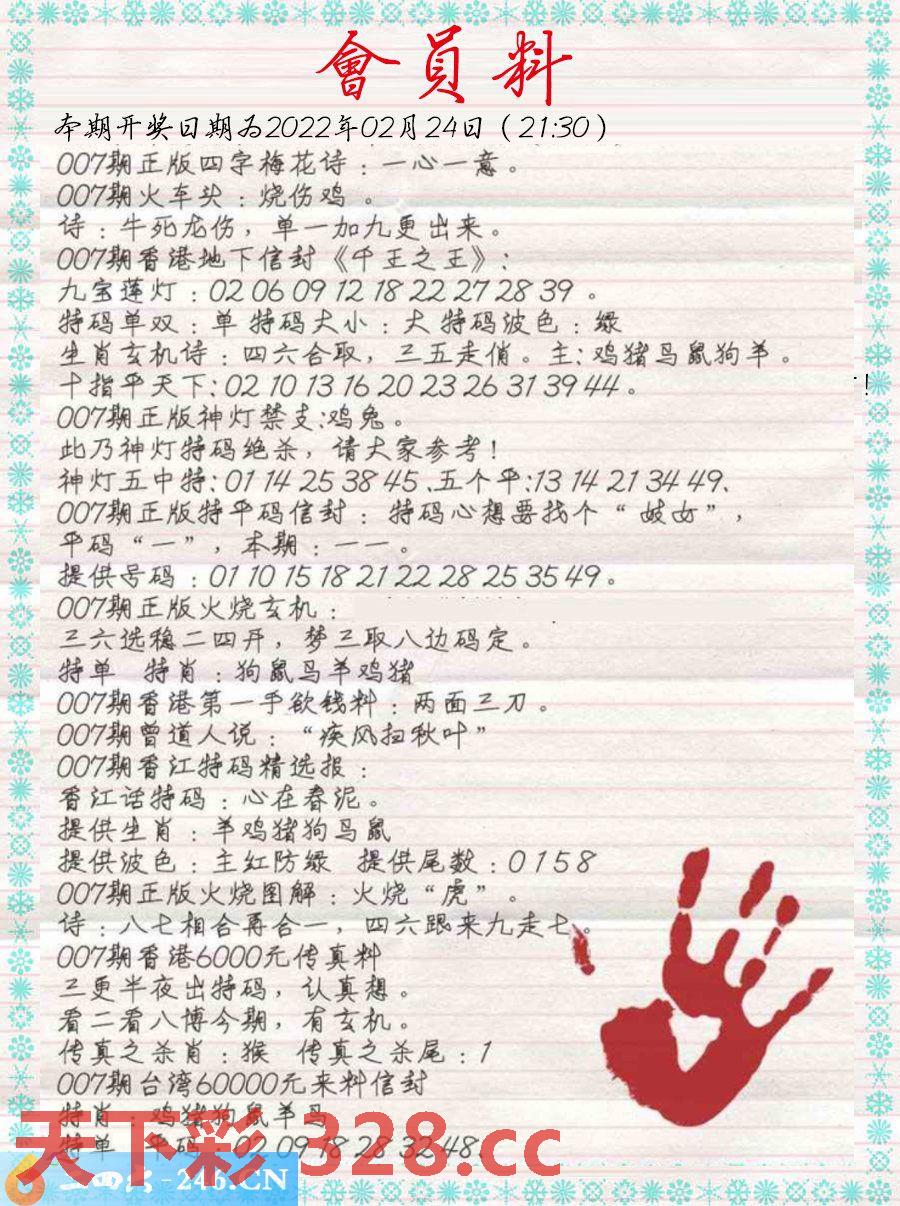 會員料
本期开奖日期为2022年02月24日（21:30）
007期正版四字梅花诗：一心一意。
007期火车头：烧伤鸡 。
诗：牛死龙伤，单一加九更出来。
007期香港地下信封《千王之王》：
九宝莲灯：02 06 09 12 18 22 27 28 39 。
特码单双：单 特码大小：大 特码波色：绿
生肖玄机诗：四六合取，三五走俏。主:鸡猪马鼠狗羊 。
十指平天下:02 10 13 16 20 23 26 31 39 44 。
!
007期正版神灯禁支:鸡兔。
此乃神灯特码绝杀，请大家参考！
神灯五中特:01 14 25 38 45、五个平:13 14 21 34 49、
007期正版特平码信封：特码心想要找个“妓女”，
平码“一”，本期：一一。
提供号码：01 10 15 18 21 22 28 25 35 49。
007期正版火烧玄机：
三六选稳二四开，梦三取八边码定。
特单 特肖：狗鼠马羊鸡猪
007期香港第一手欲钱料：两面三刀 。
007期曾道人说：“疾风扫秋叶”
007期香江特码精选报：
香江话特码：心在春泥。
提供生肖：羊鸡猪狗马鼠
提供波色：主红防绿 提供尾数：0 1 5 8
007期正版火烧图解：火烧“虎”。
诗：八七相合再合一，四六跟来九走七。
007期香港6000元传真料
三更半夜出特码，认真想。
看二看八博今期，有玄机。
传真之杀肖：猴 传真之杀尾：1
007期台湾60000元来料信封
特肖：鸡猪狗鼠羊马
特单 平码：02 09 18 28 32 48、
天下彩 328.cc
二四六-246.CN